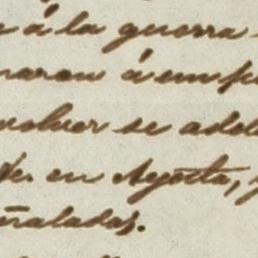 á la guerra
naron á emp
volver se adel
en Agosto,
ñaladas.